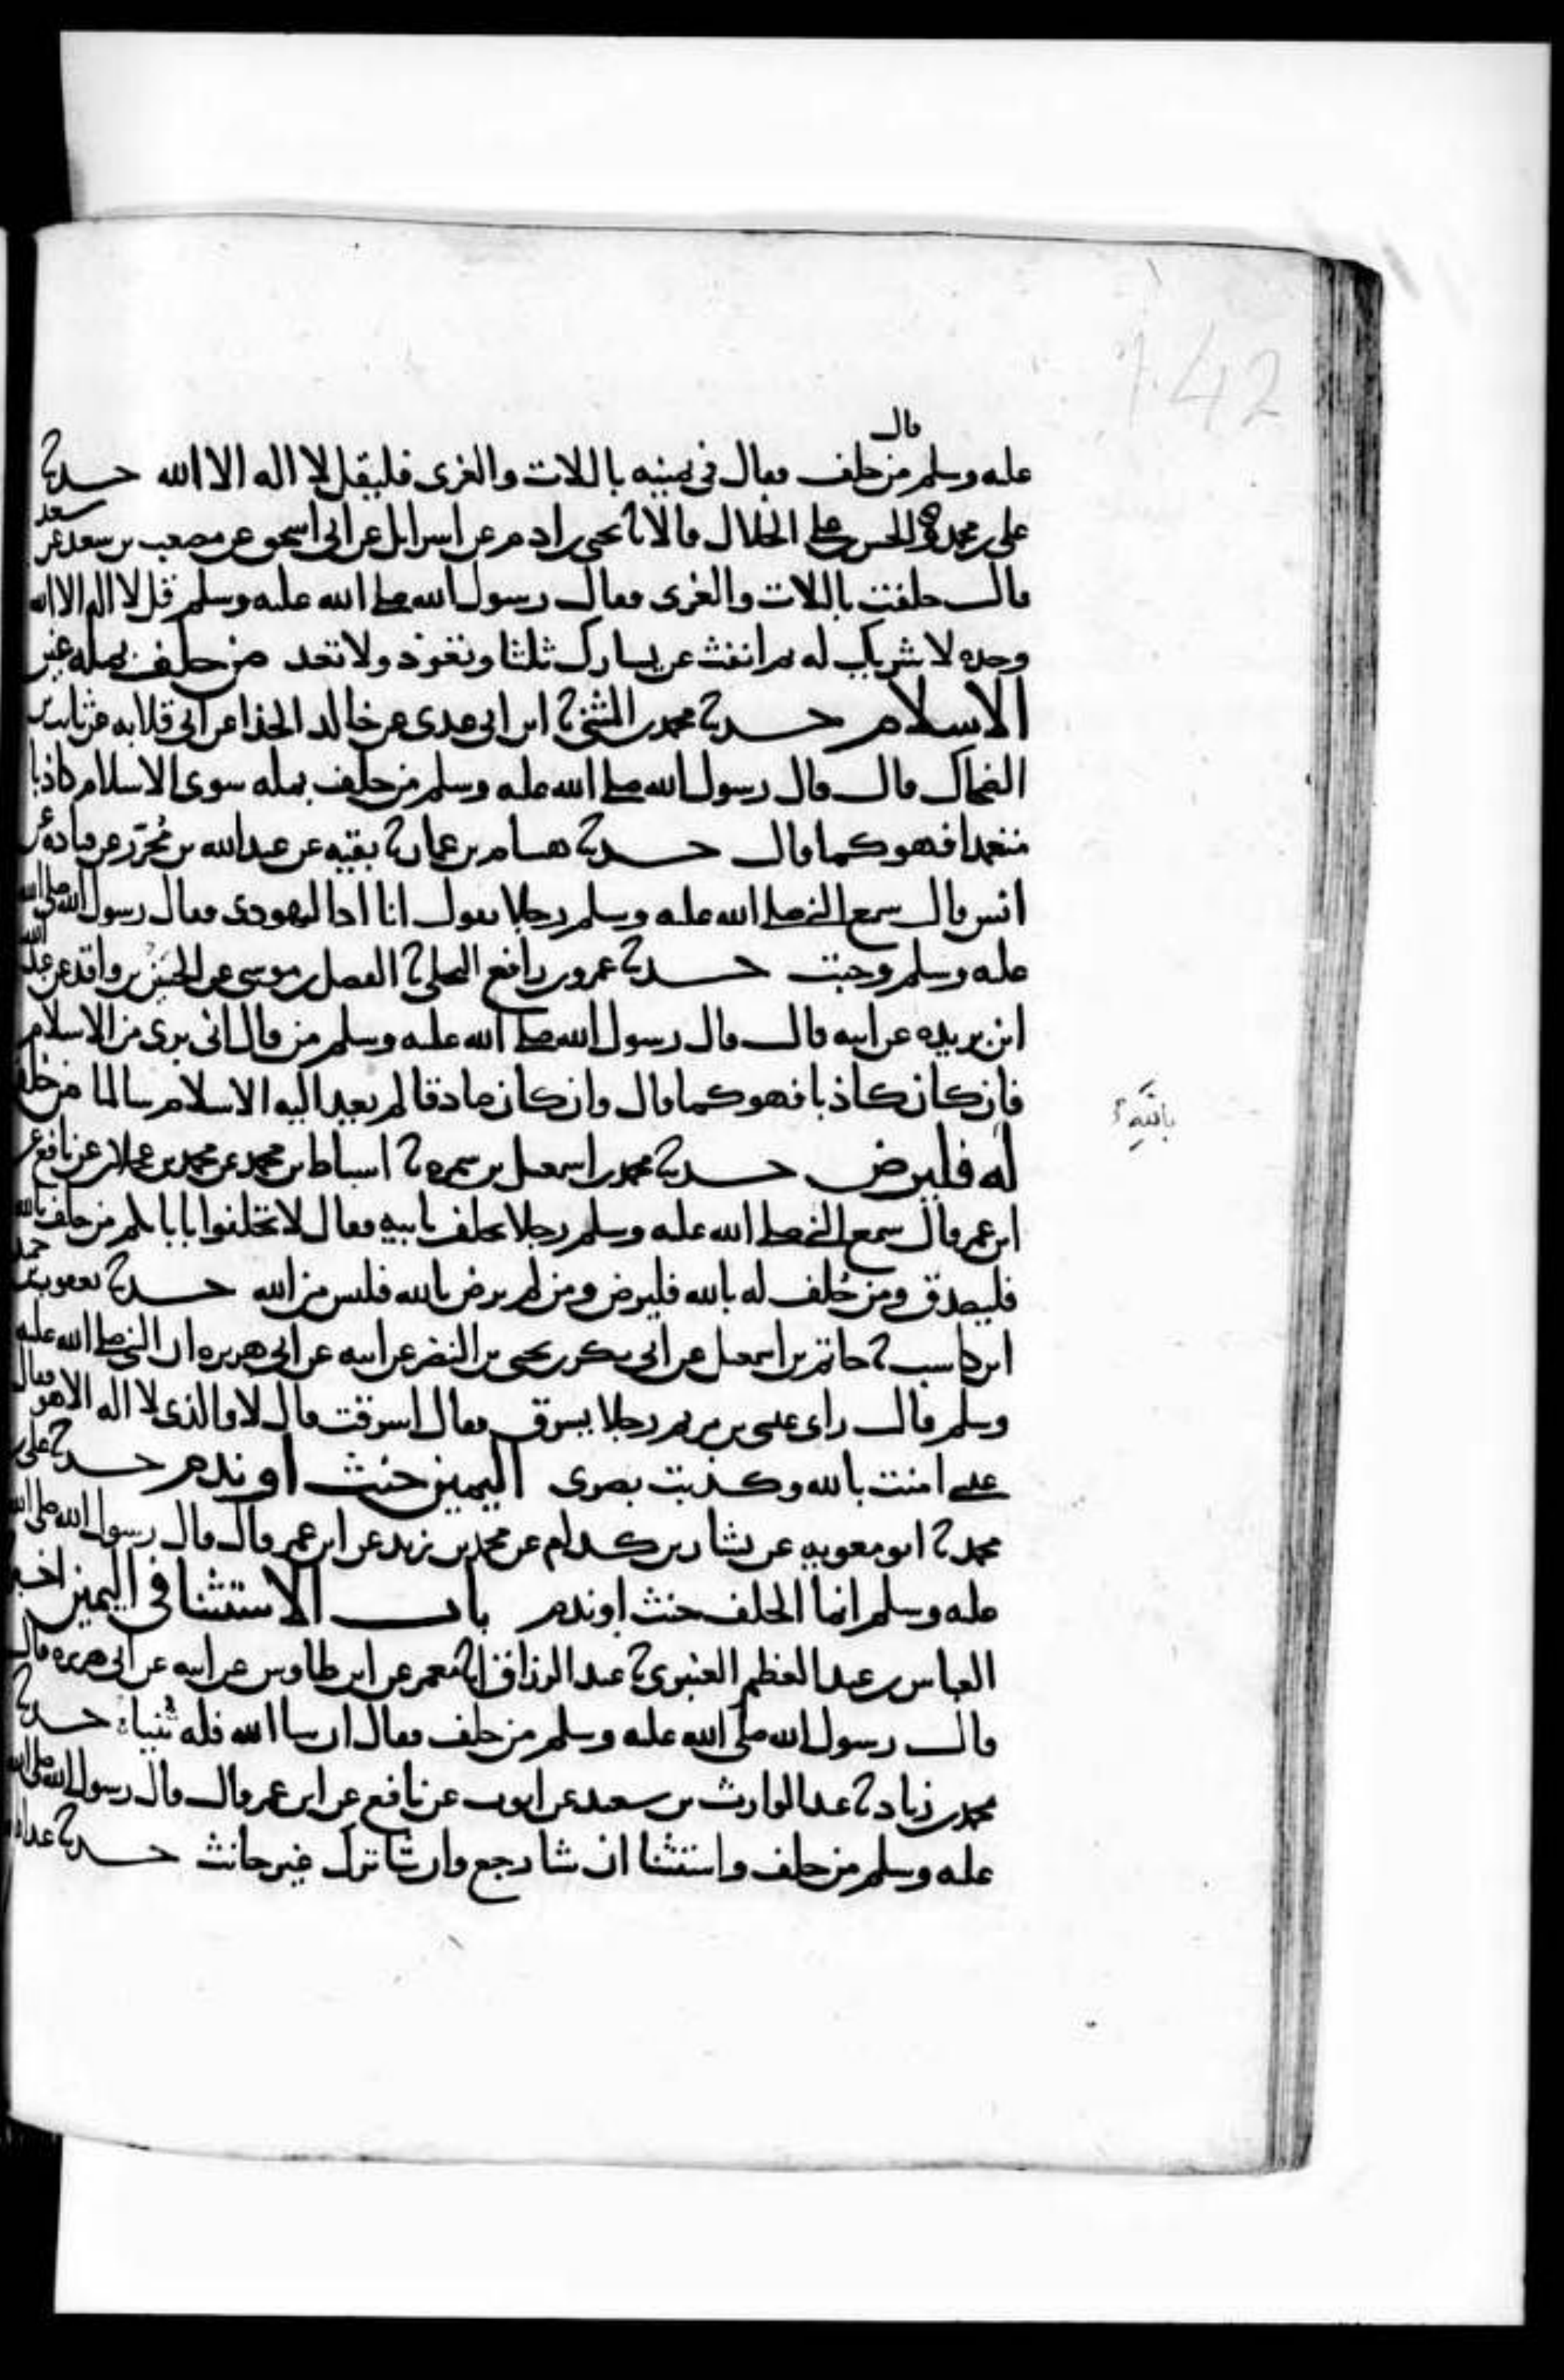 142
قال
عليه وسلم من حلف فقال في يمينه باللات والعزى فليقل لا اله الا الله حدثنا
علي بن محمد والحسن بن علي الخلال قالا ثنا يحيى بن ادم عن اسرائيل عن ابي اسحق عن مصعب بن سعد عن سعد
قال حلفت باللات والعزى فقال رسول الله صلى الله عليه وسلم قل لا اله الا الله
وحده لا شريك له ثم انفث عن يسارك ثلثا وتعوذ ولا تعد من حلف بمله غير
الاسلام حدثنا محمد بن المثنى ثنا ابن ابي عدي عن خالد الحذا عن ابي قلابه عن ثابت بن
الضحاك قال قال رسول الله صلى الله عليه وسلم من حلف بمله سوى الاسلام كاذبا
متعمدا فهو كما قال حدثنا هشام بن عمار ثنا بقيه عن عبد الله بن مُحَرَّر عن قتاده عن
انس قال سمع النبي صلى الله عليه وسلم رجلا يقول انا اذا ليهودي فقال رسول الله صلى الله
عليه وسلم وجبت حدثنا عمرو بن رافع البجلي ثنا الفضل بن موسى عن الحسين بن واقد عن عبد الله
ابن بريده عن ابيه قال قال رسول الله صلى الله عليه وسلم من قال اني بري من الاسلام
فان كان كاذبا فهو كما قال وان كان صادقا لم يعد اليه الاسلام سالما من حلف
بالله
له فليرض حدثنا محمد بن اسمعيل بن سمره ثنا اسباط بن محمد عن محمد بن عجلان عن نافع عن
ابن عمر قال سمع النبي صلى الله عليه وسلم رجلا يحلف بابيه فقال لا تحلفوا بابائكم من حلف بالله
فليصدق ومن حُلف له بالله فليرض ومن لم يرض بالله فليس من الله حدثنا يعقوب بن حميد
ابن كاسب ثنا حاتم بن اسمعيل عن ابي بكر بن يحيى بن النضر عن ابيه عن ابي هريره ان النبي صلى الله عليه
وسلم قال راى عيسى بن مريم رجلا يسرق فقال اسرقت قال لا والذي لا اله الا هو فقال
عيسى امنت بالله وكذبت بصري اليمين حنث او ندم حدثنا علي بن
محمد ثنا ابو معويه عن بشار بن كدام عن محمد بن زيد عن ابن عمر قال قال رسول الله صلى الله
عليه وسلم انما الحلف حنث او ندم باب الاستثنا في اليمين
العباس بن عبد العظيم العنبري ثنا عبد الرزاق انا معمر عن ابن طاوس عن ابيه عن ابي هريره قال
قال رسول الله صلى الله عليه وسلم من حلف فقال ان شا الله فله ثنياه حدثنا
محمد بن زياد ثنا عبد الوارث بن سعيد عن ايوب عن نافع عن ابن عمر قال قال رسول الله صلى الله
عليه وسلم من حلف واستثنا ان شا رجع وان شا ترك غير حانث حدثنا عبد الله